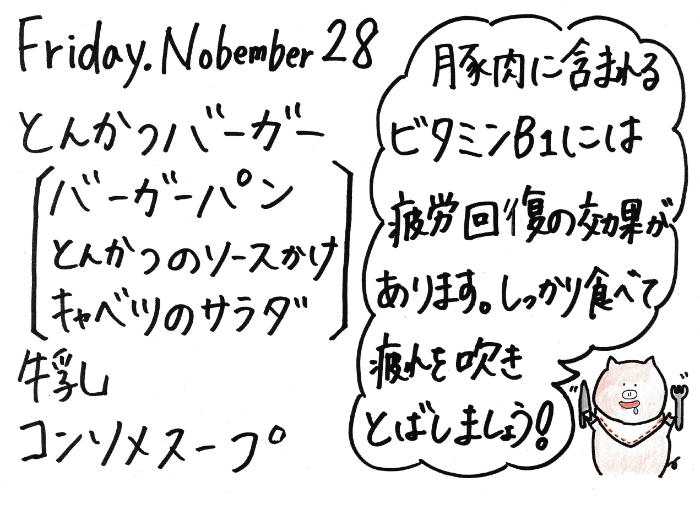 Friday. Nobember 28
とんかつバーガー
バーガーパン
とんかつのソースかけ
キャベツのサラダ
牛乳
コンソメスープ
豚肉に含まれる
ビタミンB1には
疲労回復の効果が
あります。しっかり食べて
疲れを吹き
とばしましょう!